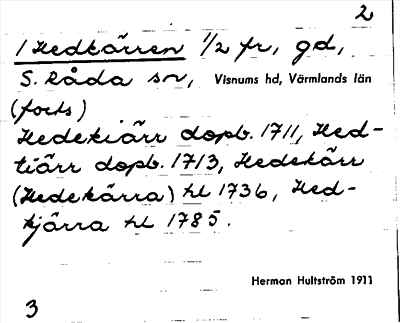 2
/ Hedkärren 1/2 fr, gd,
S. Råda sn, Visnums hd, Värmlands län
(forts)
Hedekiärr dopb. 1711, Hed-
tiärr dopb. 1713, Hedekärr
(Hedekärra) hl 1736, Hed-
kjärra hl 1785.
Herman Hultström 1911
3